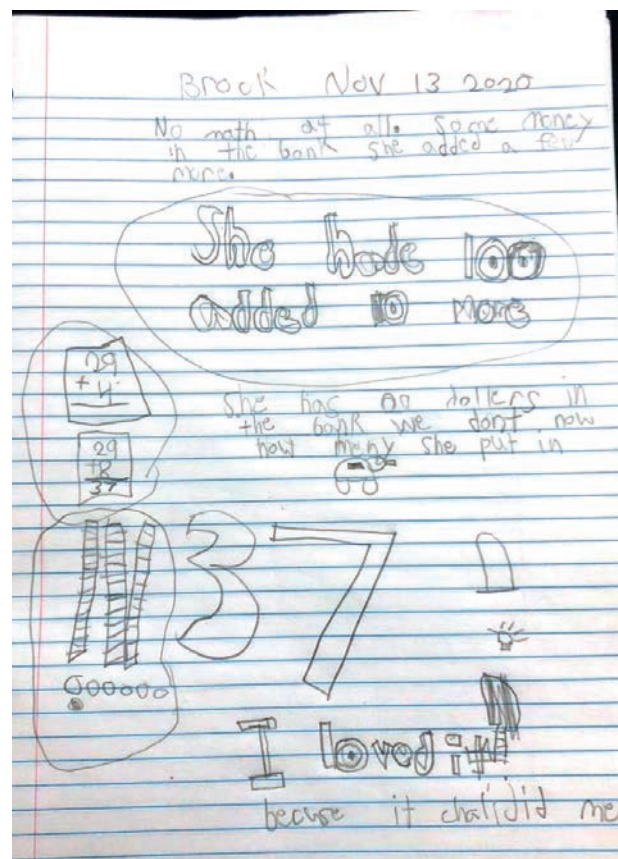 Brock Nov 13 2020
No math at all. Some money
in the bank she added a few
more.
She hade 100
added 10 more
29
+ 4
29
+8
37
She has 00 dollers in
the bank we dont now
how meny she put in
37
I loved it
becuse it chalidid me